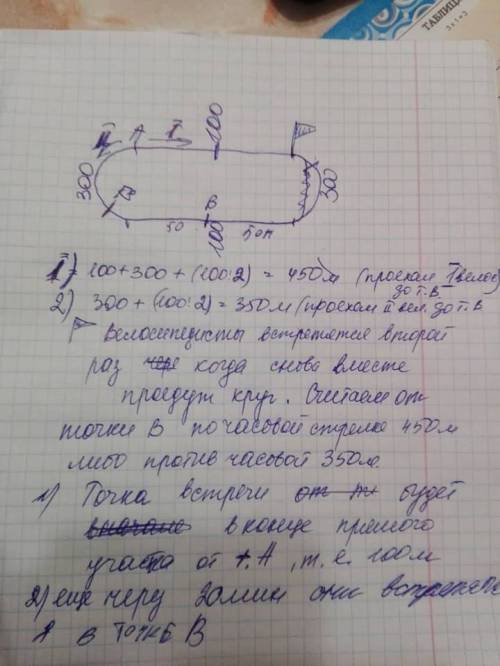 ТАБЛИЦ
3×1=3
II A I 100
300 300
B
50 100 50м
1) 100+300+(100:2) = 450м (проехал I велос)
до т.В
2) 300+(100:2)=350м (проехал II вел. до т.В
Велосипедисты встретятся второй
раз когда снова вместе
проедут круг. Считаем от
точки В по часовой стрелке 450м
либо против часовой 350м.
1) Точка встречи будет
в конце прямого
участка от т.А, т.е. 100м
2) еще через 20мин они
в точке В